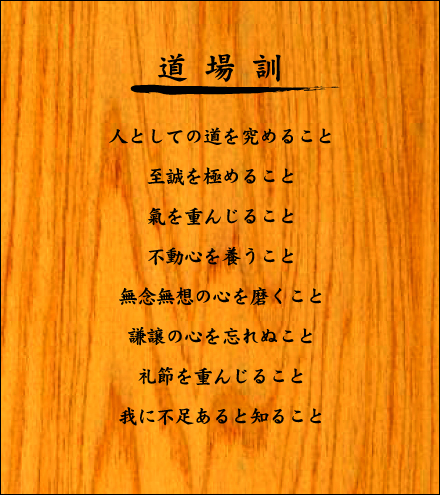 道場訓
人としての道を究めること
至誠を極めること
氣を重んじること
不動心を養うこと
無念無想の心を磨くこと
謙譲の心を忘れぬこと
礼節を重んじること
我に不足あると知ること